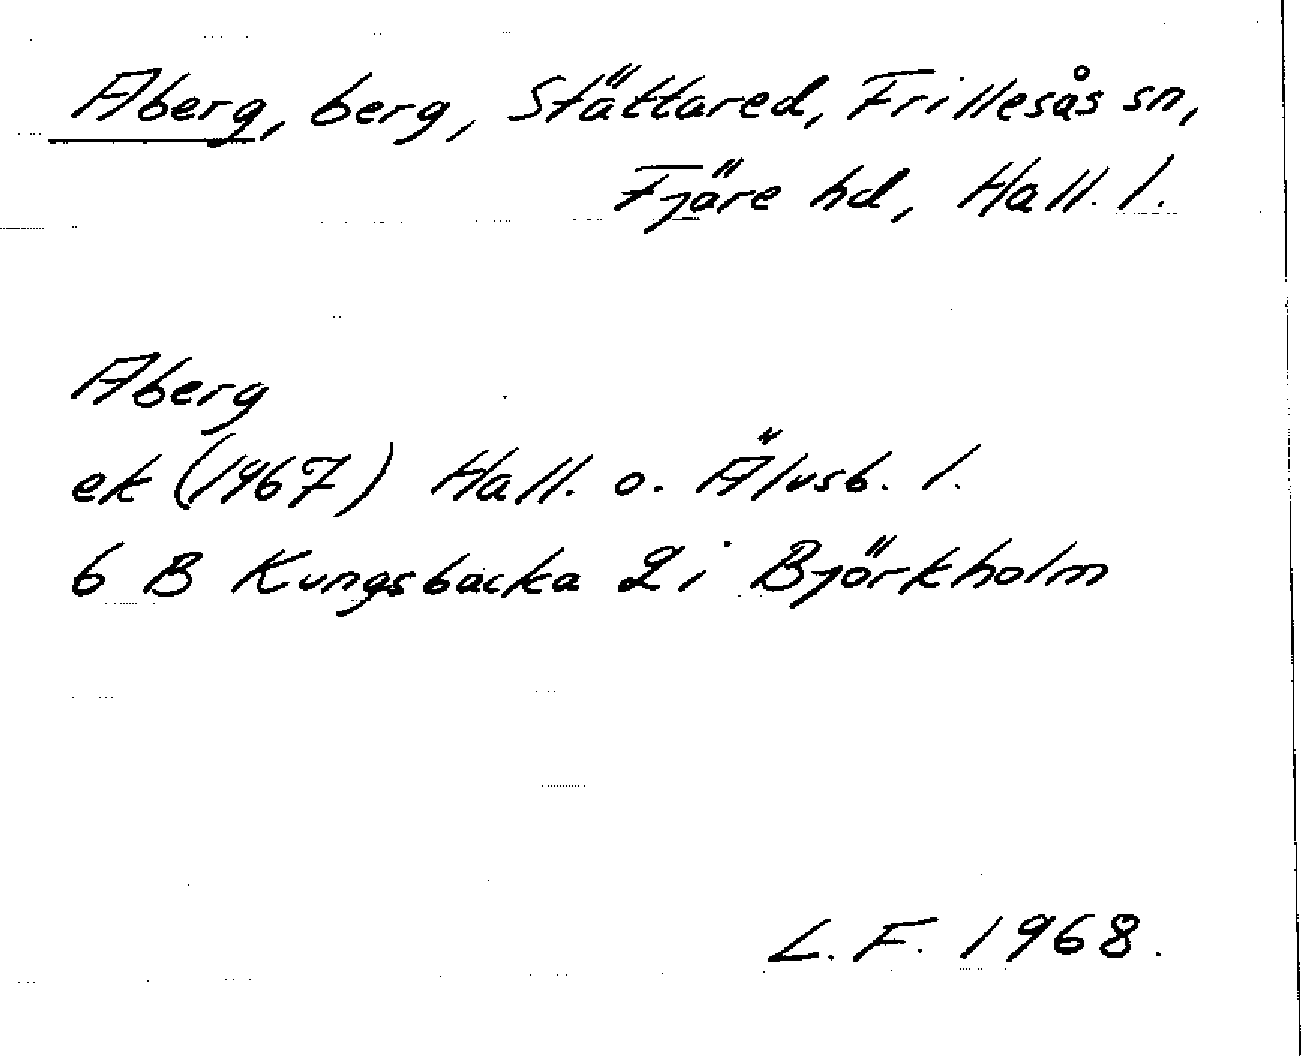 Aberg, berg, Stättared, Frillesås sn,
Fjäre hd, Hall. l.
Aberg
ek (1967) Hall. o. Älvsb. l.
6 B Kungsbacka 2 i Björkholm
L. F. 1968.